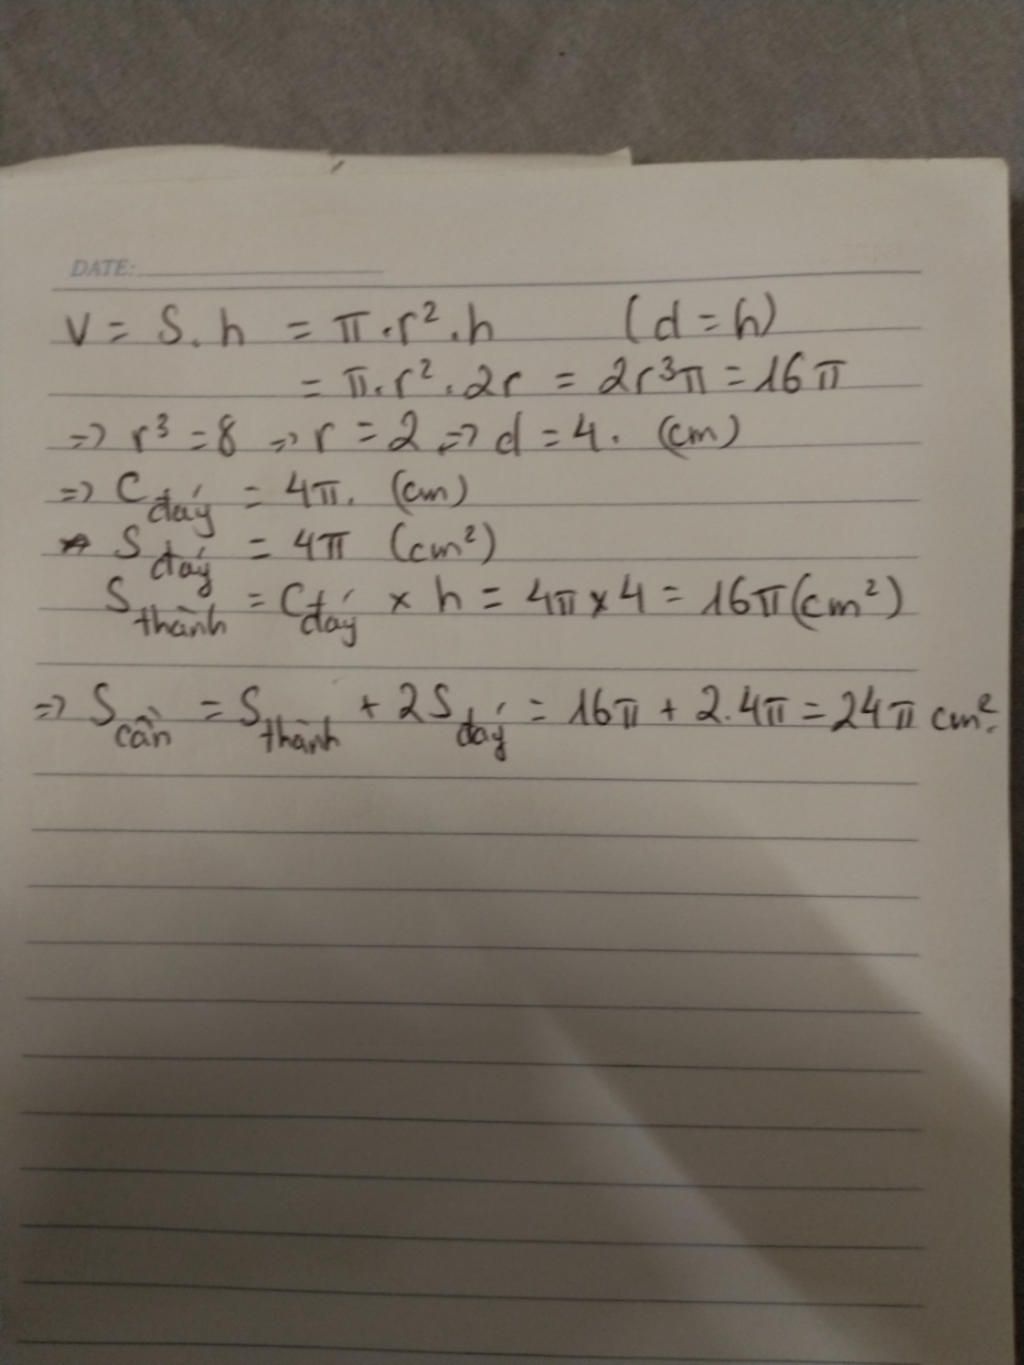 DATE:
V = S.h = π.r².h (d = h)
= π.r².2r = 2r³π = 16π
=> r³ = 8 => r = 2 => d = 4. (cm)
=> C đáy = 4π. (cm)
S đáy = 4π (cm²)
S thành = C đáy × h = 4π × 4 = 16π (cm²)
=> S cần = S thành + 2S đáy = 16π + 2.4π = 24π cm².